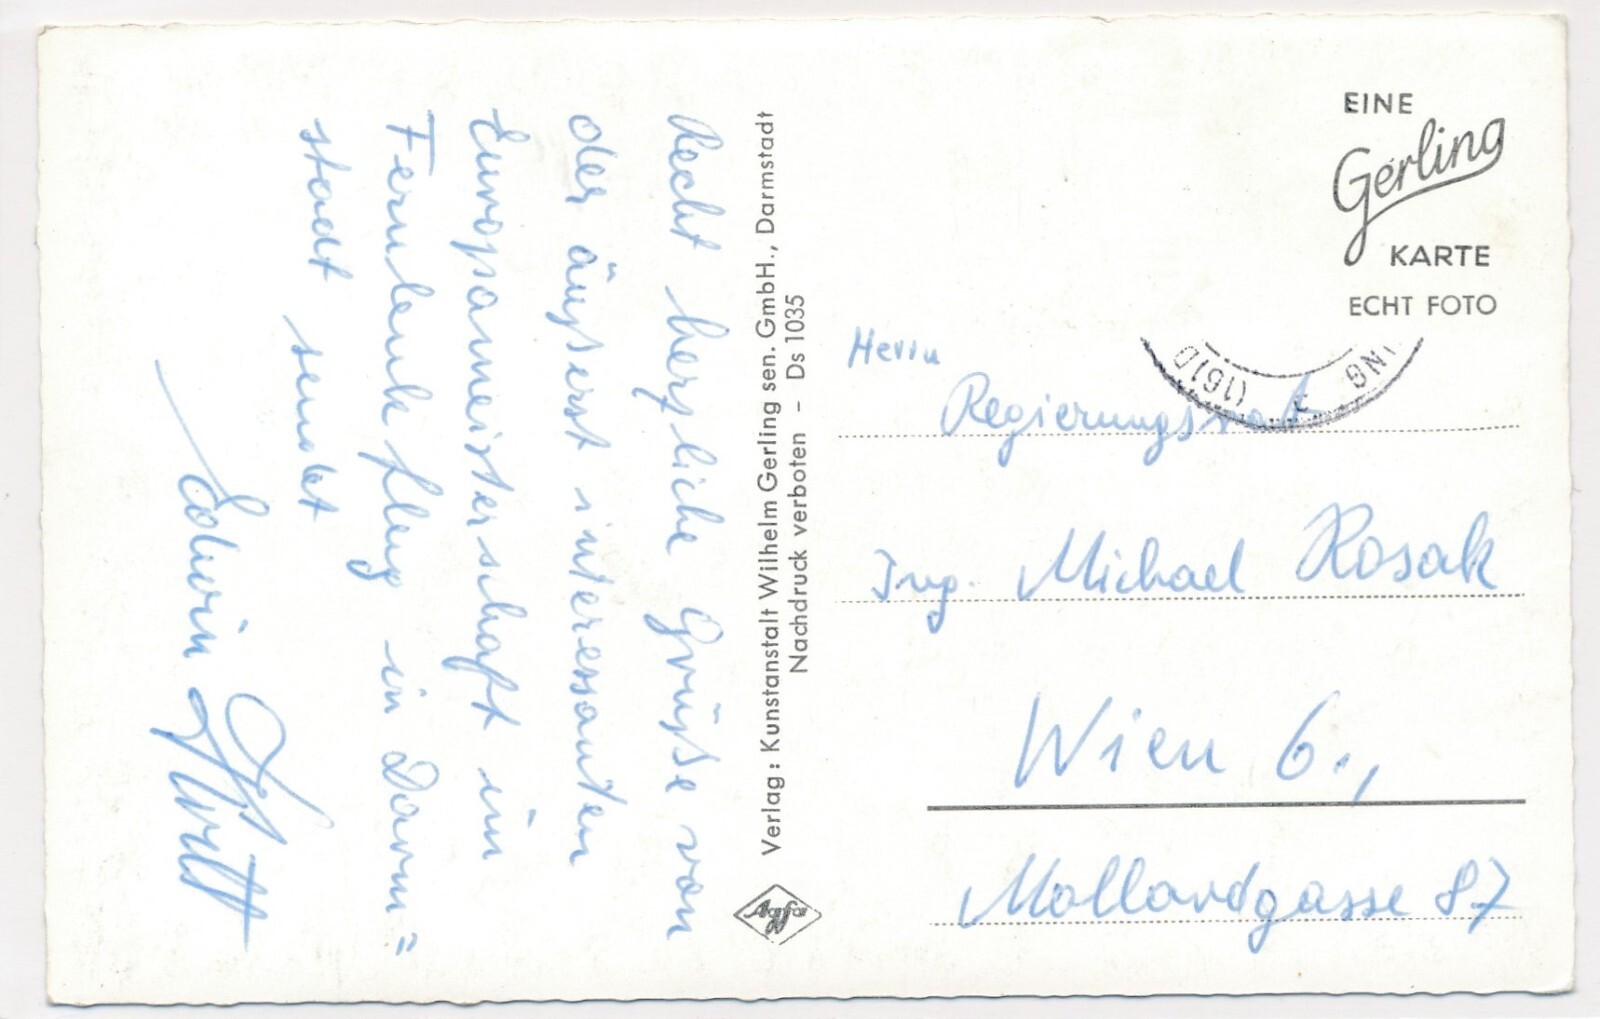 Recht herzliche Grüße von
der äußerst interessanten
Europameisterschaft im
Fernlenkflug in Darm=
stadt sendet
Edwin
Verlag: Kunstanstalt Wilhelm Gerling sen. GmbH., Darmstadt
Nachdruck verboten – Ds 1035
Agfa
EINE
Gerling
KARTE
ECHT FOTO
(16)
NG
Herrn
Regierungsrat
Ing. Michael Kosak
Wien 6.,
Mollardgasse 87